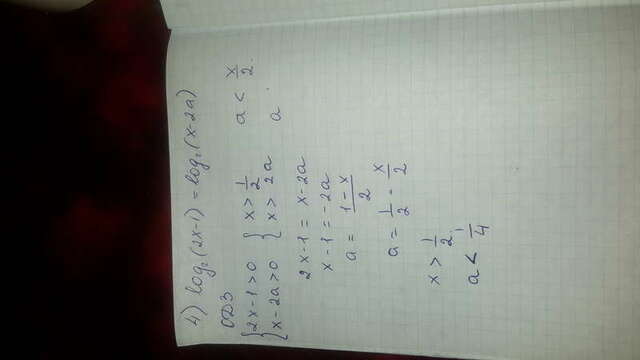 4) log₂(2x-1) = log₂(x-2a)
ОДЗ
{2x-1>0 {x> 1/2 a < x/2.
{x-2a>0 {x> 2a a
2x-1 = x-2a
x-1 = -2a
a = (1-x)/2
a = 1/2 - x/2
x > 1/2;
a < 1/4